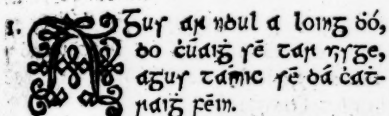 1. AGuſ aɼ ndul a loing ḋó,
do ċúaiġ ſé taɼ uſge,
aguſ táinic ſé dá ċat-
ɼaiġ féin.